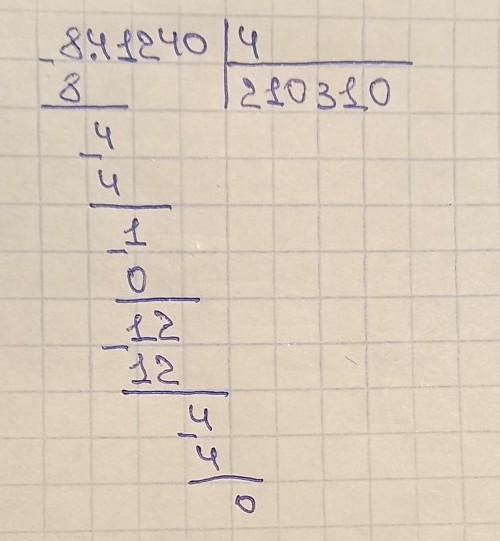 841240 4
- 8 210310
4
- 4
1
- 0
12
- 12
4
- 4
0